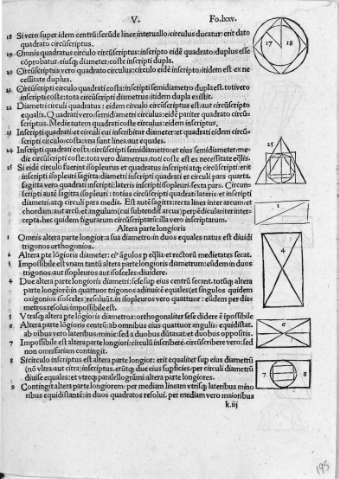 V. Fo.lxv.
18 Si vero super idem centrū: secūde linee interuallo circulus ducatur: erit dato
quadrato circūscriptus.
19 Omnis quadratus circulo circūscriptus: inscripto eidē quadrato: duplus esse
cōprobatur. eiusq; diameter: coste inscripti dupla.
Circūscriptus vero quadrato circulus: circulo eidē inscripto itidem est ex ne
cessitate duplus.
circulo quadrati costa: inscripti semidiametro dupla est. totivero
inscripti coste: tota circūscripti diametros itidem dupla existit.
Diametri circuli quadratus: eidem circulo circūscriptus est: aut circūscripto
equalis. Quadrati vero semidiametri circulus: eidē pariter quadrato circū
scriptus. Medietatem quadrati coste circulus: eidem inscriptus.
Inscripti quadrati et circuli cui inscribitur diameter: et quadrati eidem circū
scripti circulo: costa: vna sunt linea aut equales.
Inscripti quadrati costa: circūscripti semidiametro: et eius semidiameter: me
die circūscripti coste: tota vero diametros toti coste est ex necessitate eq̄lis.
25 Si eidē circulo fuerint isopleurus et quadratus inscripti atq; circūscripti: erit
inscripti isopleuri sagitta diametri inscripti quadrati et circuli pars quarta.
sagitta vero quadrati inscripti: lateris inscripti isopleuri sexta pars. Circum
scripti autē sagitta isopleuri: totius circūscripti quadrati lateris: et inscripti
diametri atq; circuli pars media. Est autē sagitta: recta linea inter arcum: et
chordam: aut arcū et angulum (cui subtendit arcus) perpēdicularis inter
cepta. hec quidem figurarum circūscriptarū: illa vero inscriptarum.
Altera parte longioris
1 Omnis altera parte longior: a sua diametro: in duos equales natus est diuidi
trigonos orthogonios.
2 Altera pte lōgioris diameter:
3 Impossibile est vnam tantū altera parte longioris diametrum: eidem in duos
trigonos aut isopleuros aut isosceles diuidere.
4 Due altera parte longioris diametri: sese sup eius centrū secant. totāq; altera
parte longiorē in quattuor trigonos
oxigonios isosceles resoluūt. in isopleuros vero quattuor: eidem per dia
metros resolui impossibile est.
5 Vtrasq; altera pte lōgioris diametrū: orthogonaliter sese diuidere ē ipossibile
6 Altera parte lōgioris centrū: ab omnibus eius quattuor angulis: equidistat.
ab oibus vero lateribus minime: sed a duobus distat: et a duobus oppositis.
7 Impossibile est altera parte longiori: circulū inscribere: circūscribere vero: sed
non omnifariam contingit.
8 Si circulo inscriptus est altera parte longior: erit equaliter sup eius diametrū
diuise equales: et vtreq; parallelogrami altera parte longiores.
9 Contingit altera parte longiorem: per mediam lineam vtrisq; lateribus mino
ribus equidistanti: in duos quadratos resolui. per mediam vero maioribus
k.iij
17 18
25
1
4
6
7 8
195